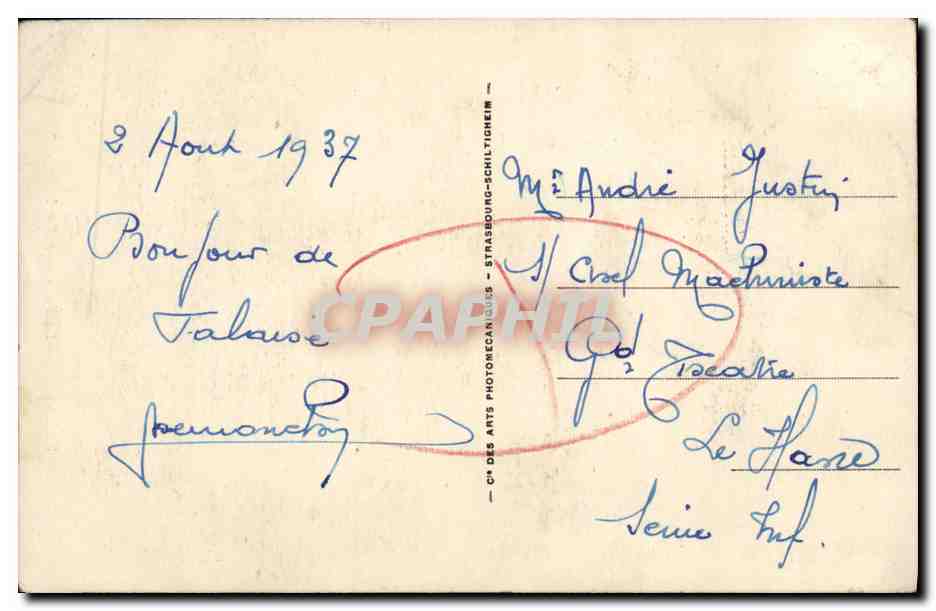 2 Aout 1937
Bonjour de
Falaise
Cie DES ARTS PHOTOMECANIQUES - STRASBOURG-SCHILTIGHEIM
Mr André Justin
S/ Chef Machiniste
Gd Theatre
Le Havre
Seine Inf.
CPAPHIL